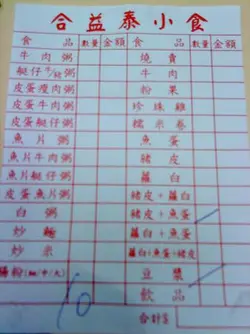 合益泰小食
食品 數量 金額 食品 數量 金額
牛肉粥 燒賣
艇仔粥 牛肉
皮蛋瘦肉粥 粉果
皮蛋牛肉粥 珍珠雞
皮蛋艇仔粥 糯米卷
魚片粥 魚蛋
魚片牛肉粥 豬皮
魚片艇仔粥 蘿白
皮蛋魚片粥 豬皮+蘿白
白粥 豬皮+魚蛋
炒麵 蘿白+魚蛋
炒米 蘿白+魚蛋+豬皮
腸粉(細/中/大) 10 豆漿
飲品
合計$